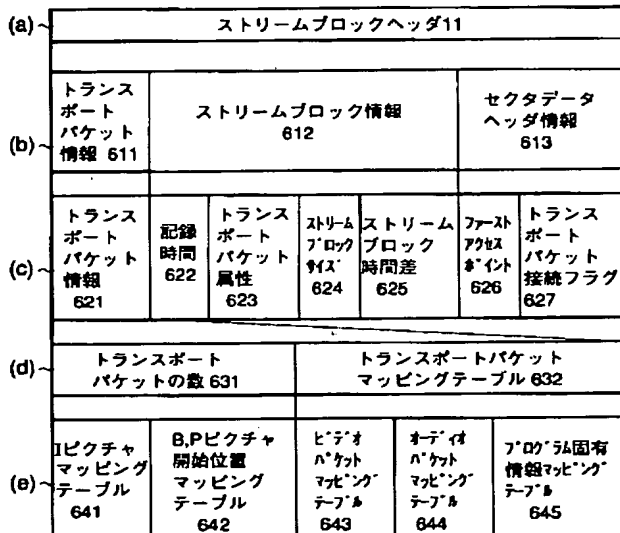 (a)
ストリームブロックヘッダ11
(b)
トランス
ポート
パケット
情報 611
ストリームブロック情報
612
セクタデータ
ヘッダ情報
613
(c)
トランス
ポート
パケット
情報
621
記録
時間
622
トランス
ポート
パケット
属性
623
ストリーム
ブロック
サイズ
624
ストリーム
ブロック
時間差
625
ファースト
アクセス
ポイント
626
トランス
ポート
パケット
接続フラグ
627
(d)
トランスポート
パケットの数 631
トランスポートパケット
マッピングテーブル 632
(e)
Iピクチャ
マッピング
テーブル
641
B,Pピクチャ
開始位置
マッピング
テーブル
642
ビデオ
パケット
マッピング
テーブル
643
オーディオ
パケット
マッピング
テーブル
644
プログラム固有
情報マッピング
テーブル
645